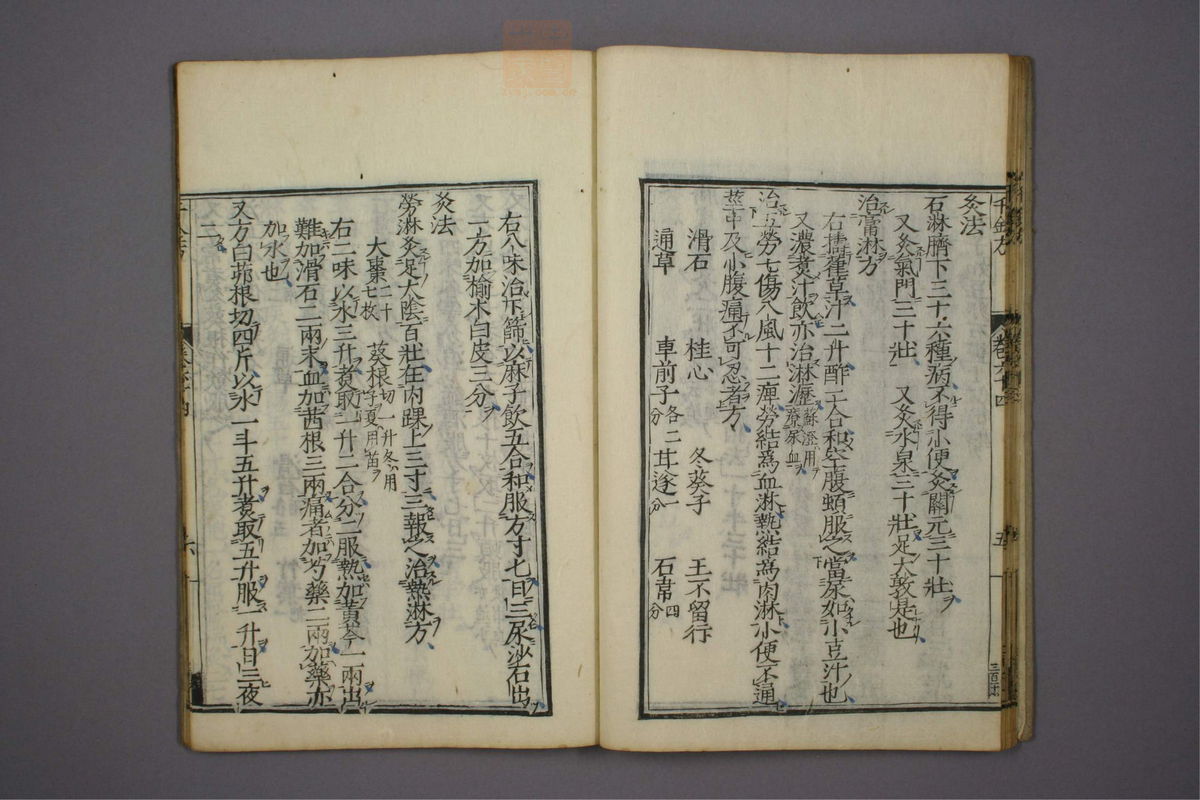 灸法
石淋臍下三十六種病不得小便灸關元三十壯
又灸氣門三十壯 又灸水泉三十壯足大敦是也
治膏淋方
右擣葎草汁二升酢二合和空腹頓服之當尿如小豆汁也
又濃煮汁飲亦治淋瀝 蘇澄用療尿血
治五勞七傷八風十二痺勞結爲血淋熱結爲肉淋小便不通
莖中及小腹痛不可忍者方
滑石 桂心 冬葵子 王不留行
通草 車前子各二分 甘遂一分 石韋四分
右八味治下篩以麻子飲五合和服方寸匕日三尿沙石出
一方加榆木白皮三分
灸法
勞淋灸足太陰百壯在内踝上三寸三報之治熱淋方
大棗二十七枚 葵根切一升冬用子夏用苗
右二味以水三升煮取一升二合分二服熱加黄芩一兩出
難加滑石二兩末血加茜根三兩痛者加芍藥二兩加藥亦
加水也
又方白茆根切四斤以水一斗五升煮取五升服一升日三夜
二